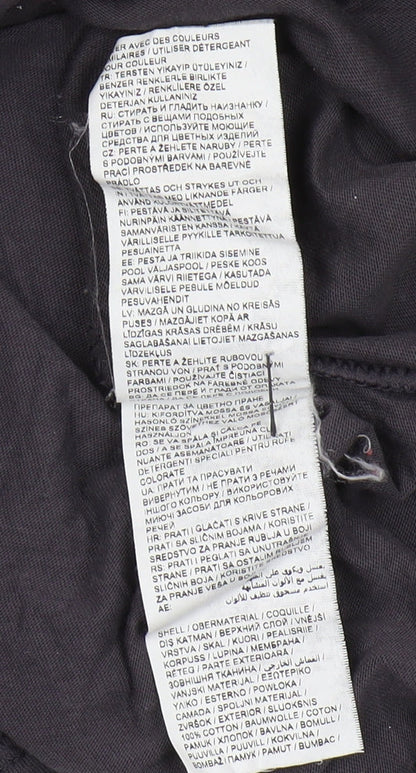 AVEC DES COULEURS
/ UTILISER DÉTERGEANT
POUR COULEUR
TR: TERSTEN YIKAYIP ÜTÜLEYINIZ /
BENZER RENKLERLE BIRLIKTE
YIKAYINIZ / RENKLILERE ÖZEL
DETERJAN KULLANINIZ
RU: СТИРАТЬ И ГЛАДИТЬ НАИЗНАНКУ /
СТИРАТЬ С ВЕЩАМИ ПОДОБНЫХ
ЦВЕТОВ / ИСПОЛЬЗУЙТЕ МОЮЩИЕ
СРЕДСТВА ДЛЯ ЦВЕТНЫХ ИЗДЕЛИЙ
CZ: PERTE A ŽEHLETE NARUBY / PERTE
S PODOBNÝMI BARVAMI / POUŽÍVEJTE
PRACÍ PROSTŘEDEK NA BAREVNÉ
PRÁDLO
TVÄTTAS OCH STRYKES UT OCH
ANVÄND LIKNANDE FÄRGER /
FI: PESTÄVÄ JA SILITETTÄVÄ
NURINPÄIN KÄÄNNETTYNÄ / PESTÄVÄ
SAMANVÄRISTEN KANSSA /
VÄRILLISELLE PYYKILLE TARKOITETTUA
PESUAINETTA
EE: PESTA JA TRIIKIDA SISEMINE
POOL VÄLJASPOOL / PESKE KOOS
SAMA VÄRVI RIIETEGA / KASUTADA
VÄRVILISELE PESULE MÕELDUD
PESUVAHENDIT
LV: MAZGĀ UN GLUDINA NO KREISĀS
PUSES / MAZGĀJIET KOPĀ AR
LĪDZĪGAS KRĀSAS DRĒBĒM / KRĀSU
SAGLABĀŠANAI LIETOJIET MAZGĀŠANAS
LĪDZEKĻUS
SK: PERTE A ŽEHLITE RUBOVOU
STRANOU VON / PRAŤ S PODOBNÝMI
FARBAMI / POUŽÍVAJTE ČISTIACI
PROSTRIEDOK NA FAREBNÉ ODEVY
BG: ДА СЕ ПЕРЕ И ГЛАДИ ОТ
ПРЕПАРАТ ЗА ЦВЕТНО ПРАНЕ
HU: KIFORDÍTVA MOSSA ÉS VASALJA /
HASONLÓ SZÍNEKKEL MOSSA
SZÍNES SZÖVET
HASZNÁLJON
RO: SE VA SPĂLA ŞI CĂLCA PE
DOS / A SE SPĂLA ÎMPREUNĂ CU
NUANŢE ASEMĂNĂTOARE /
DETERGENŢI SPECIALI PENTRU RUFE
COLORATE
UA: ПРАТИ ТА ПРАСУВАТИ
ВИВЕРНУТИМ / НЕ ПРАТИ З РЕЧАМИ
ІНШОГО КОЛЬОРУ / ВИКОРИСТОВУЙТЕ
МИЮЧІ ЗАСОБИ ДЛЯ КОЛЬОРОВИХ
РЕЧЕЙ
HR: PRATI / GLAČATI S KRIVE STRANE /
PRATI SA SLIČNIM BOJAMA / KORISTITE
SREDSTVO ZA PRANJE RUBLJA U BOJI
RS: PRATI / PEGLATI SA UNUTRAŠNJE
STRANE / PRATI SA OSTALIM RUBLJEM
SLIČNIH BOJA / KORISTITE SREDSTVO
ZA PRANJE VEŠA U BOJI
AE:
يغسل ويكوى على
يغسل مع الألوان المتشابهة
استخدم مسحوق تنظيف للألوان
SHELL / OBERMATERIAL / COQUILLE /
DIŞ KATMAN / ВЕРХНИЙ СЛОЙ / VNĚJŠÍ
VRSTVA / SKAL / KUORI / PEALISRIIE /
KORPUSS / LUPINA / МЕМБРАНА /
RÉTEG / PARTE EXTERIOARĂ /
ЗОВНІШНЯ ТКАНИНА / القماش الخارجي /
VANJSKI MATERIJAL / ΕΞΩΤΕΡΙΚΟ
ΥΛΙΚΟ / ESTERNO / POWŁOKA /
CAMADA / SPOLJNI MATERIJAL /
ZVRŠOK / EXTERIOR / SLUOKSNIS
100% COTTON / BAUMWOLLE / COTON /
PAMUK / ХЛОПОК / BAVLNA / BOMULL /
PUUVILLA / PUUVILL / KOKVILNA /
BOMBAŽ / ПАМУК / PAMUT / BUMBAC /